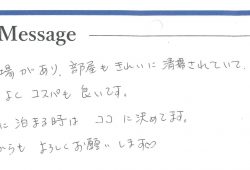 Message
場があり、部屋もきれいに清掃されていて、
よく コスパも良いです。
に泊まる時は ココに決めてます。
からも よろしくお願いします♡